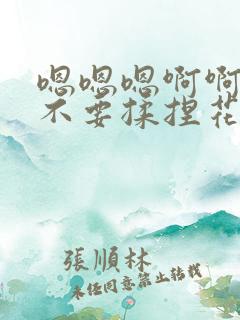 嗯嗯嗯啊啊
不要揉捏花
張順林
未经同意禁止转载